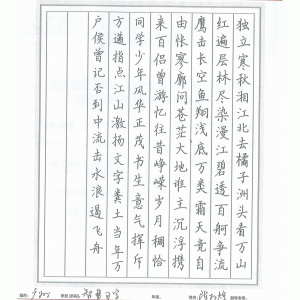 独立寒秋湘江北去橘子洲头看万山
红遍层林尽染漫江碧透百舸争流
鹰击长空鱼翔浅底万类霜天竞自
由怅寥廓问苍茫大地谁主沉浮携
来百侣曾游忆往昔峥嵘岁月稠恰
同学少年风华正茂书生意气挥斥
方遒指点江山激扬文字粪土当年万
户侯曾记否到中流击水浪遏飞舟